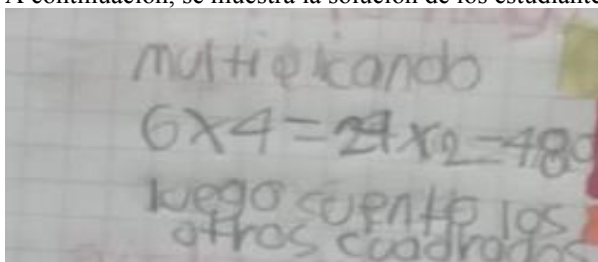 A continuación, se muestra la solución de los estudiante
multiplicando
6x4=24x2=48
luego cuento los
otros cuadrados